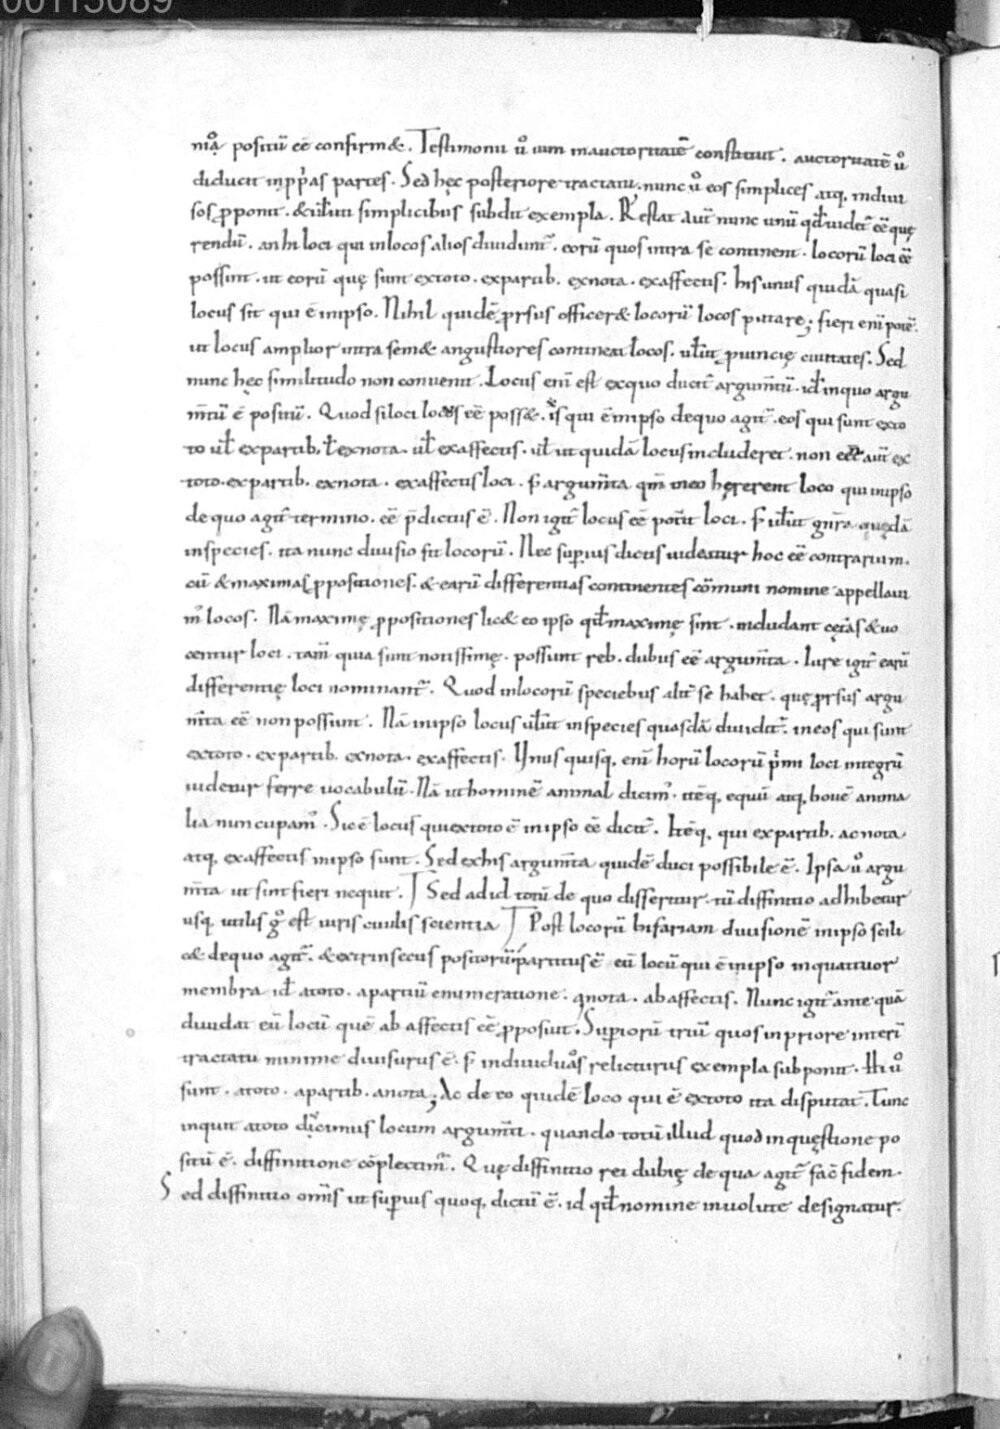 00115089
nio᷒ positū eē confirm&. Testimonii ů uim in auctoritatē constituit. auctoritatē ů
diducit in ꝓp̓as partes. Sed hęc posteriore tractatu. nunc ů eos simplices atq, indiui
sos ꝓponit. & uƚuti simplicibus subdit exempla. Restat aut̄ nunc unū qđ uidet̄ eē quę
rendū. an hi loci qui in locos alios diuidunt̄. eorū quos intra se continent. locorū loci eē
possint. ut eorū quę sunt ex toto. ex partib. ex nota. ex affectis. his unus quidā quasi
locus sit qui ē in ipso. Nihil quidē ꝓrsus officer& locorū locos putare; fieri eni᷒ potē.
ut locus amplior intra sem& angustiores contineat locos. uƚut ꝓuincię ciuitates. Sed
nunc hęc similitudo non conuenit. Locus eni᷒ est ex quo ducit̄ argum̄tū. id in quo argu
m̄tū ē positū. Quod si loci locos eē poss&. is qui ē in ipso de quo agit̄. eos qui sunt ex to
to uƚ ex partib. ƚ ex nota. uƚ ex affectis. uƚ ut quidā locus includeret. non eēt aut̄ ex
toto. ex partib. ex nota. ex affectis loci. s; argum̄ta qm̄ in eo hęrerent loco qui in ipso
de quo agit̄ termino. eē p̄dictus ē. Non igit̄ locus eē potit loci. s; uƚut gn̄ra quędā
in species. ita nunc diuisio fit locorū. Nec suꝑius dictis uideatur hoc eē contrarium.
cū & maximas ꝓpositiones. & earū differentias continentes cōmuni nomine appellaui
m᷒ locos. Nā maximę ꝓpositiones lic& eo ipso qđ maximę sint. includant cęt̄as & uo
centur loci. tam̄ quia sunt notissimę. possunt reb. dubiis eē argum̄ta. Iure igit̄ earū
differentię loci nominant̄. Quod in locorū speciebus alit̄ se habet. quę ꝓrsus argu
m̄ta eē non possunt. Nā in ipso locus uƚut in species quasdā diuidit̄. in eos qui sunt
ex toto. ex partib. ex nota. ex affectis. Unus quisq, eni᷒ horū locorū p̓mi loci integrū
uidetur ferre uocabulū. Nā ut hominē animal dicim᷒. itēq, equū atq, bouē anima
lia nuncupam᷒. Sic ē locus qui ex toto ē in ipso eē dicit̄. Itēq, qui ex partib. ac nota
atq, ex affectis in ipso sunt. Sed ex his argum̄ta quidē duci possibile ē. Ipsa ů argu
m̄ta ut sint fieri nequit. Sed ad id totū de quo disseritur. tū diffinitio adhibetur
usq, utilis gͦ est iuris ciuilis scientia. Post locorū bifariam diuisionē in ipso scili
c& de quo agit̄. & extrinsecus positorū partitus ē eū locū qui ē in ipso in quattuor
membra id ē a toto. a partiū enumeratione. a nota. ab affectis. Nunc igit̄ ante quā
diuidat eū locū quē ab affectis eē ꝓposuit. Suꝑiorū triū quos in priore interi
tractatu minime diuisurus ē. s; indiuiduos relicturus exempla subponit. Hi ů
sunt. a toto. a partib. a nota; Ac de eo quidē loco qui ē ex toto ita disputat. Tunc
inquit a toto dicimus locum argum̄ti. quando totū illud quod in quęstione po
sitū ē. diffinitione cōplectimur. Quę diffinitio rei dubię de qua agit̄ facit fidem.
Sed diffinitio om̄is ut suꝑius quoq, dictū ē. id qđ nomine inuolute designatur.